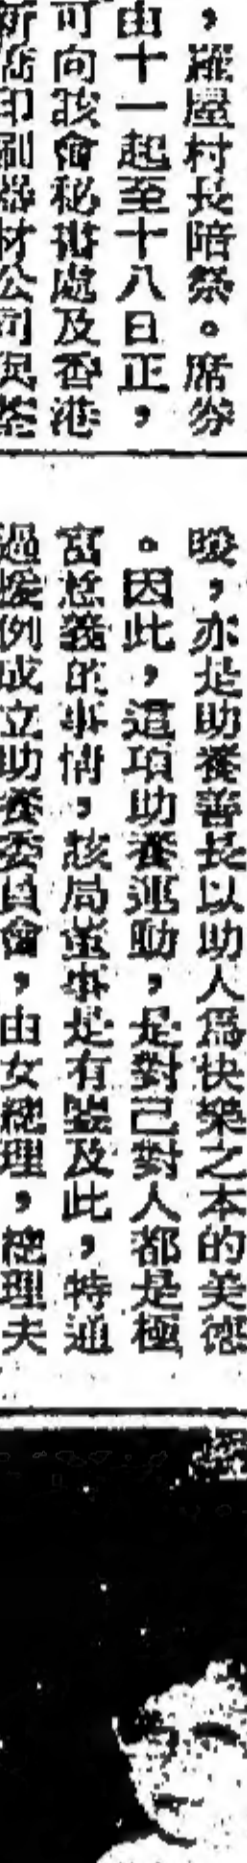 ，羅屋村長陪祭。席券
由十一起至十八日正，
可向該會秘書處及香港
新高印刷器材公司吳荃
暖，亦是助養善長以助人爲快樂之本的美德
。因此，這項助養運動，是對己對人都是極
富慈義的事情，該局董事是有鑒及此，特通
過援例成立助養委員會，由女總理，總理夫